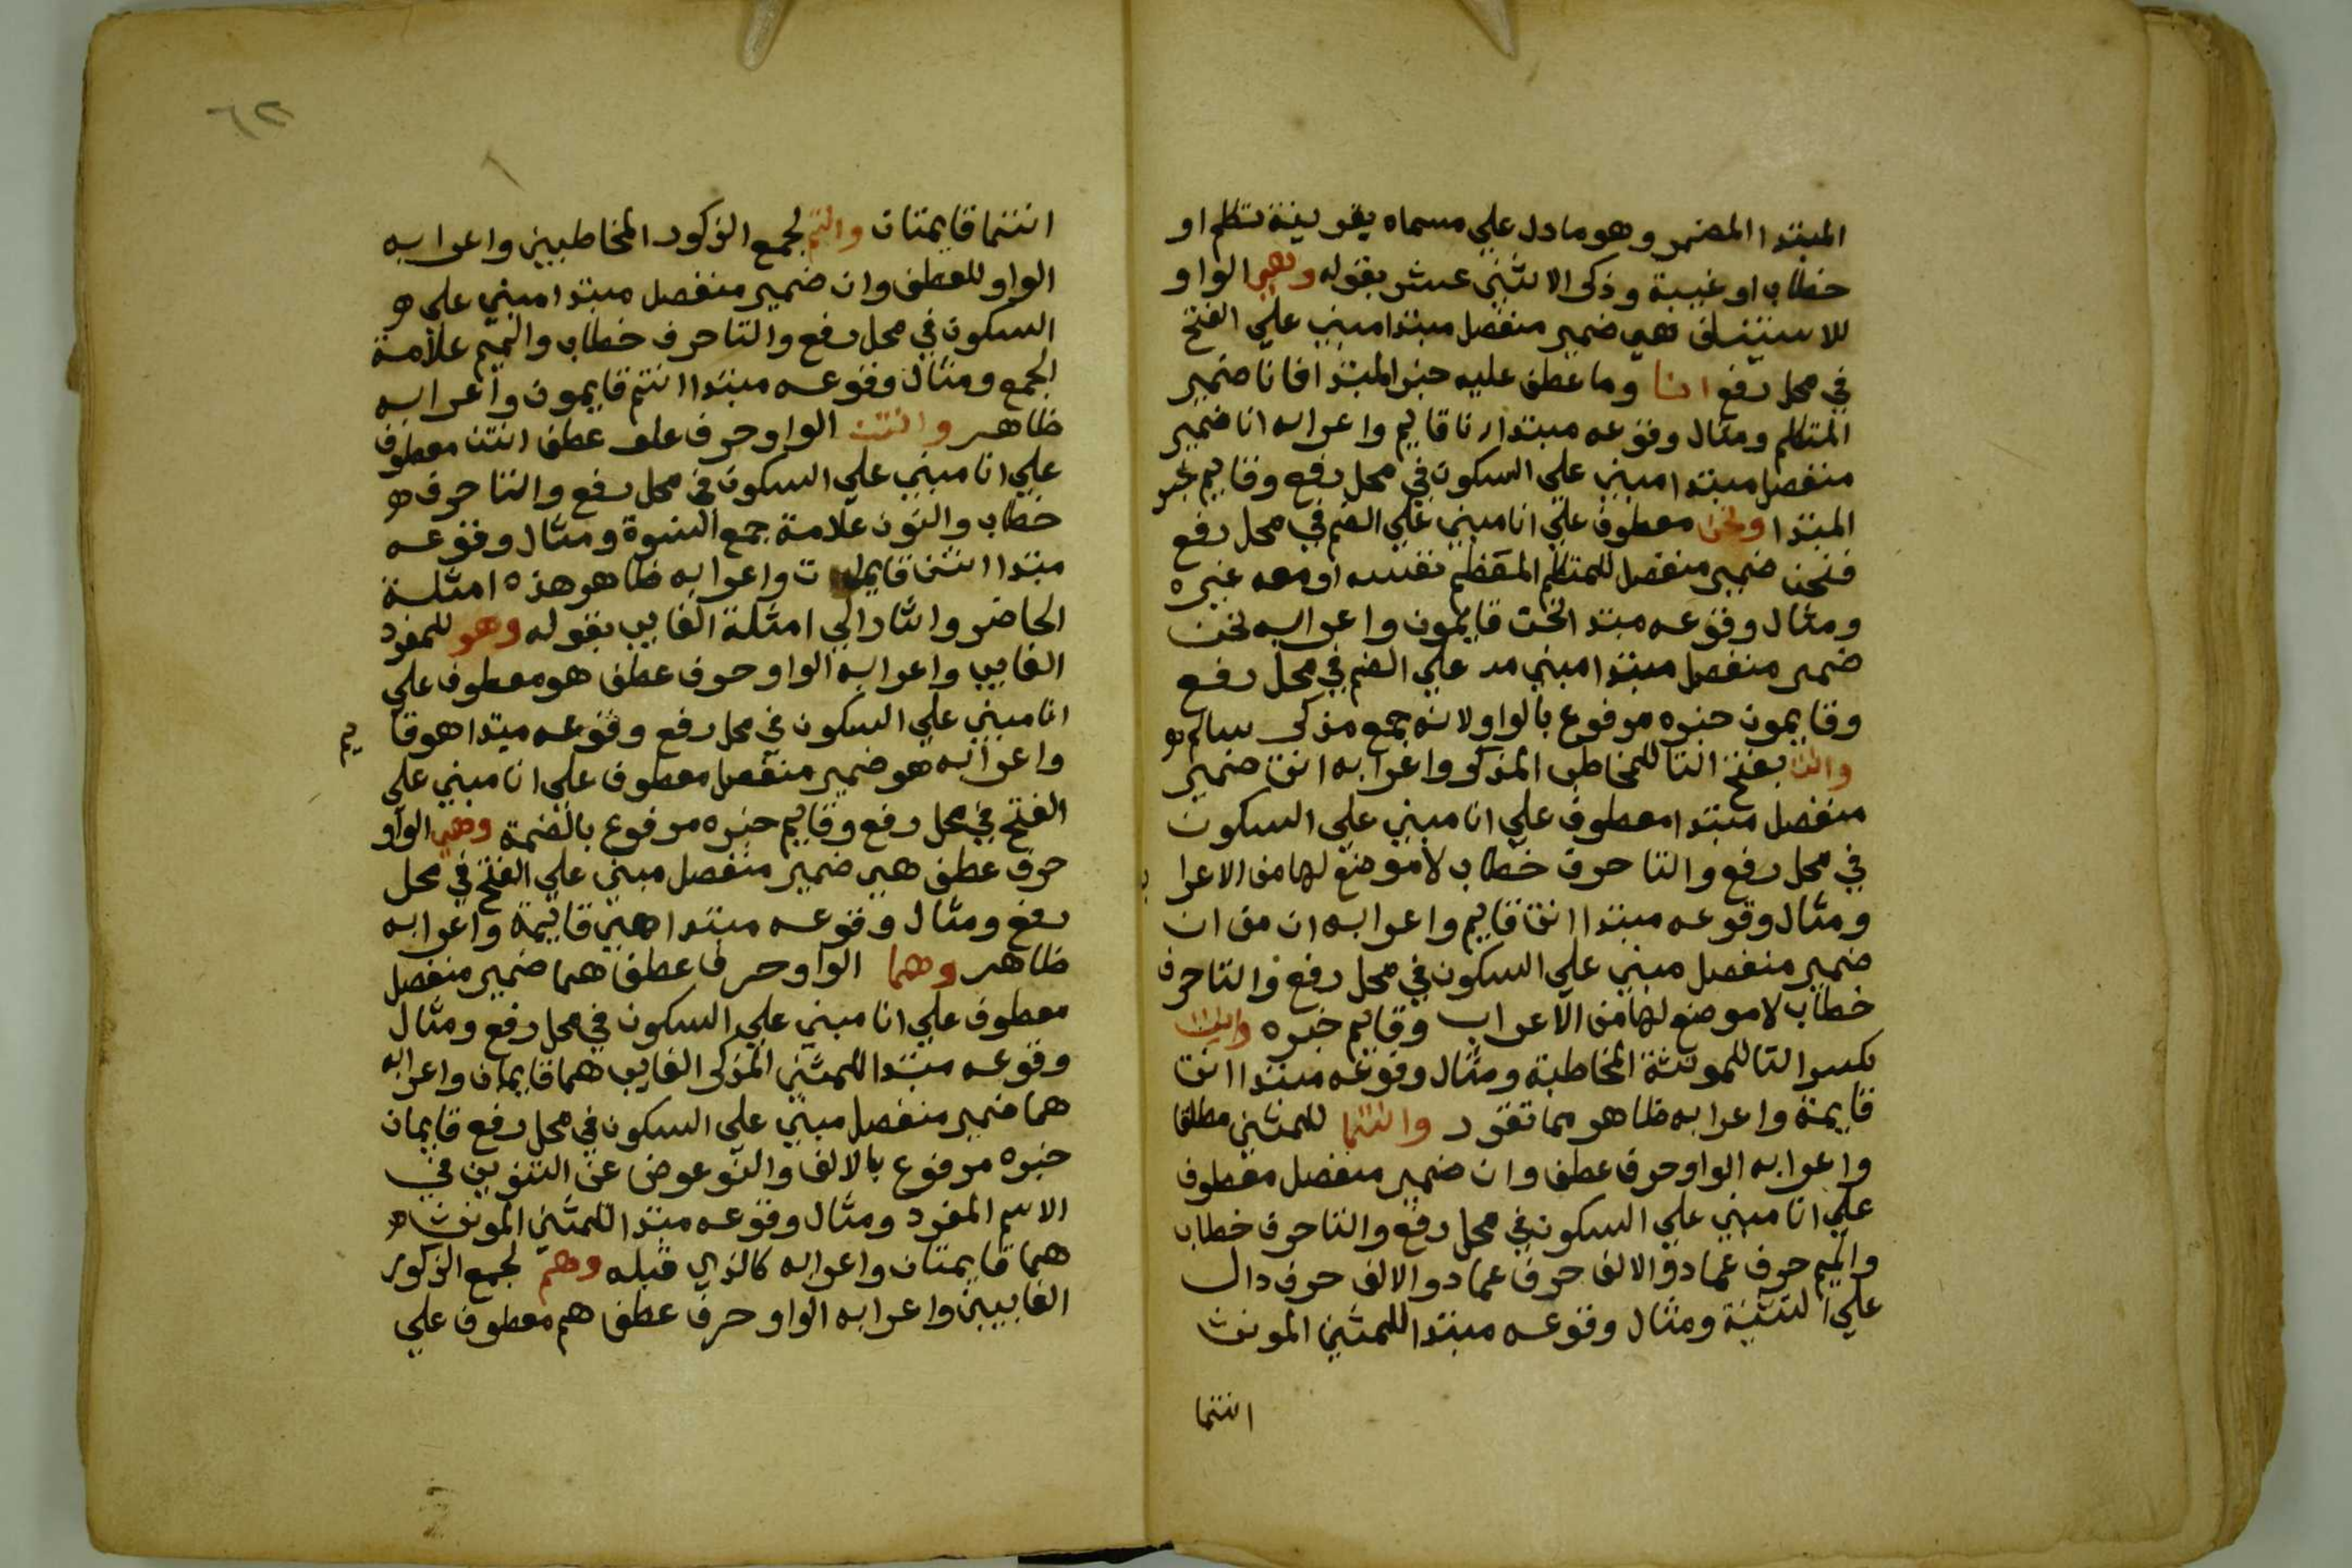 المبتدا المضمر وهو ما دل علي مسماه بقرينة تكلم او
خطاب او غيبة وذكر الاثني عشر بقوله وهي الواو
للاستيناف هي ضمير منفصل مبتدا مبني علي الفتح
في محل رفع انا وما عطف عليه خبر المبتدا فانا ضمير
المتكلم ومثال وقوعه مبتدا انا قايم واعرابه انا ضمير
منفصل مبتدا مبني علي السكون في محل رفع وقايم خبر
المبتدا ونحن معطوف علي انا مبني علي الضم في محل رفع
فنحن ضمير منفصل للمتكلم المعظم نفسه او معه غيره
ومثال وقوعه مبتدا نحن قايمون واعرابه نحن
ضمير منفصل مبتدا مبني علي الضم في محل رفع
وقايمون خبره مرفوع بالواو لانه جمع مذكر سالم
وانت بفتح التا للمخاطب المذكر واعرابه انت ضمير
منفصل مبتدا معطوف علي انا مبني علي السكون
في محل رفع والتا حرف خطاب لا موضع لها من الاعراب
ومثال وقوعه مبتدا انت قايم واعرابه ان من انت
ضمير منفصل مبني علي السكون في محل رفع والتا حرف
خطاب لا موضع لها من الاعراب وقايم خبره وانت
بكسر التا للمونثة المخاطبة ومثال وقوعه مبتدا انت
قايمة واعرابه ظاهر مما تقرر وانتما للمثني مطلقا
واعرابه الواو حرف عطف وان ضمير منفصل معطوف
علي انا مبني علي السكون في محل رفع والتا حرف خطاب
والميم حرف عماد والالف حرف عماد والالف حرف دال
علي التثنية ومثال وقوعه مبتدا للمثني المونث
انتما
انتما قايمتان وانتم لجمع الذكور المخاطبين واعرابه
الواو للعطف وان ضمير منفصل مبتدا مبني علي
السكون في محل رفع والتا حرف خطاب والميم علامة
الجمع ومثال وقوعه مبتدا انتم قايمون واعرابه
ظاهر وانتن الواو حرف عطف انتن معطوف
علي انا مبني علي السكون في محل رفع والتا حرف
خطاب والنون علامة جمع النسوة ومثال وقوعه
مبتدا انتن قايمات واعرابه ظاهر هذه امثلة
الحاضر واشار الي امثلة الغايب بقوله وهو للمفرد
الغايب واعرابه الواو حرف عطف هو معطوف علي
انا مبني علي السكون في محل رفع وقوعه مبتدا هو قايم
واعرابه هو ضمير منفصل معطوف علي انا مبني علي
الفتح في محل رفع وقايم خبره مرفوع بالضمة وهي الواو
حرف عطف هي ضمير منفصل مبني علي الفتح في محل
رفع ومثال وقوعه مبتدا هي قايمة واعرابه
ظاهر وهما الواو حرف عطف هما ضمير منفصل
معطوف علي انا مبني علي السكون في محل رفع ومثال
وقوعه مبتدا للمثني المذكر الغايب هما قايمان واعرابه
هما ضمير منفصل مبني علي السكون في محل رفع قايمان
خبره مرفوع بالالف والنو عوض عن التنوين في
الاسم المفرد ومثال وقوعه مبتدا للمثني المونث
هما قايمتان واعرابه كالذي قبله وهم لجمع الذكور
الغايبين واعرابه الواو حرف عطف هم معطوف علي